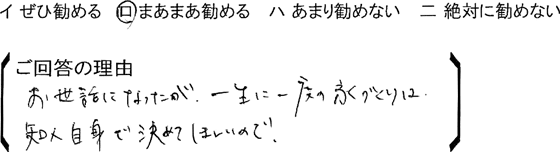 イ ぜひ勧める ロ まあまあ勧める ハ あまり勧めない 二 絶対に勧めない
ご回答の理由
お世話になったが、一生に一度の家づくりは、
知人自身で決めてほしいので、